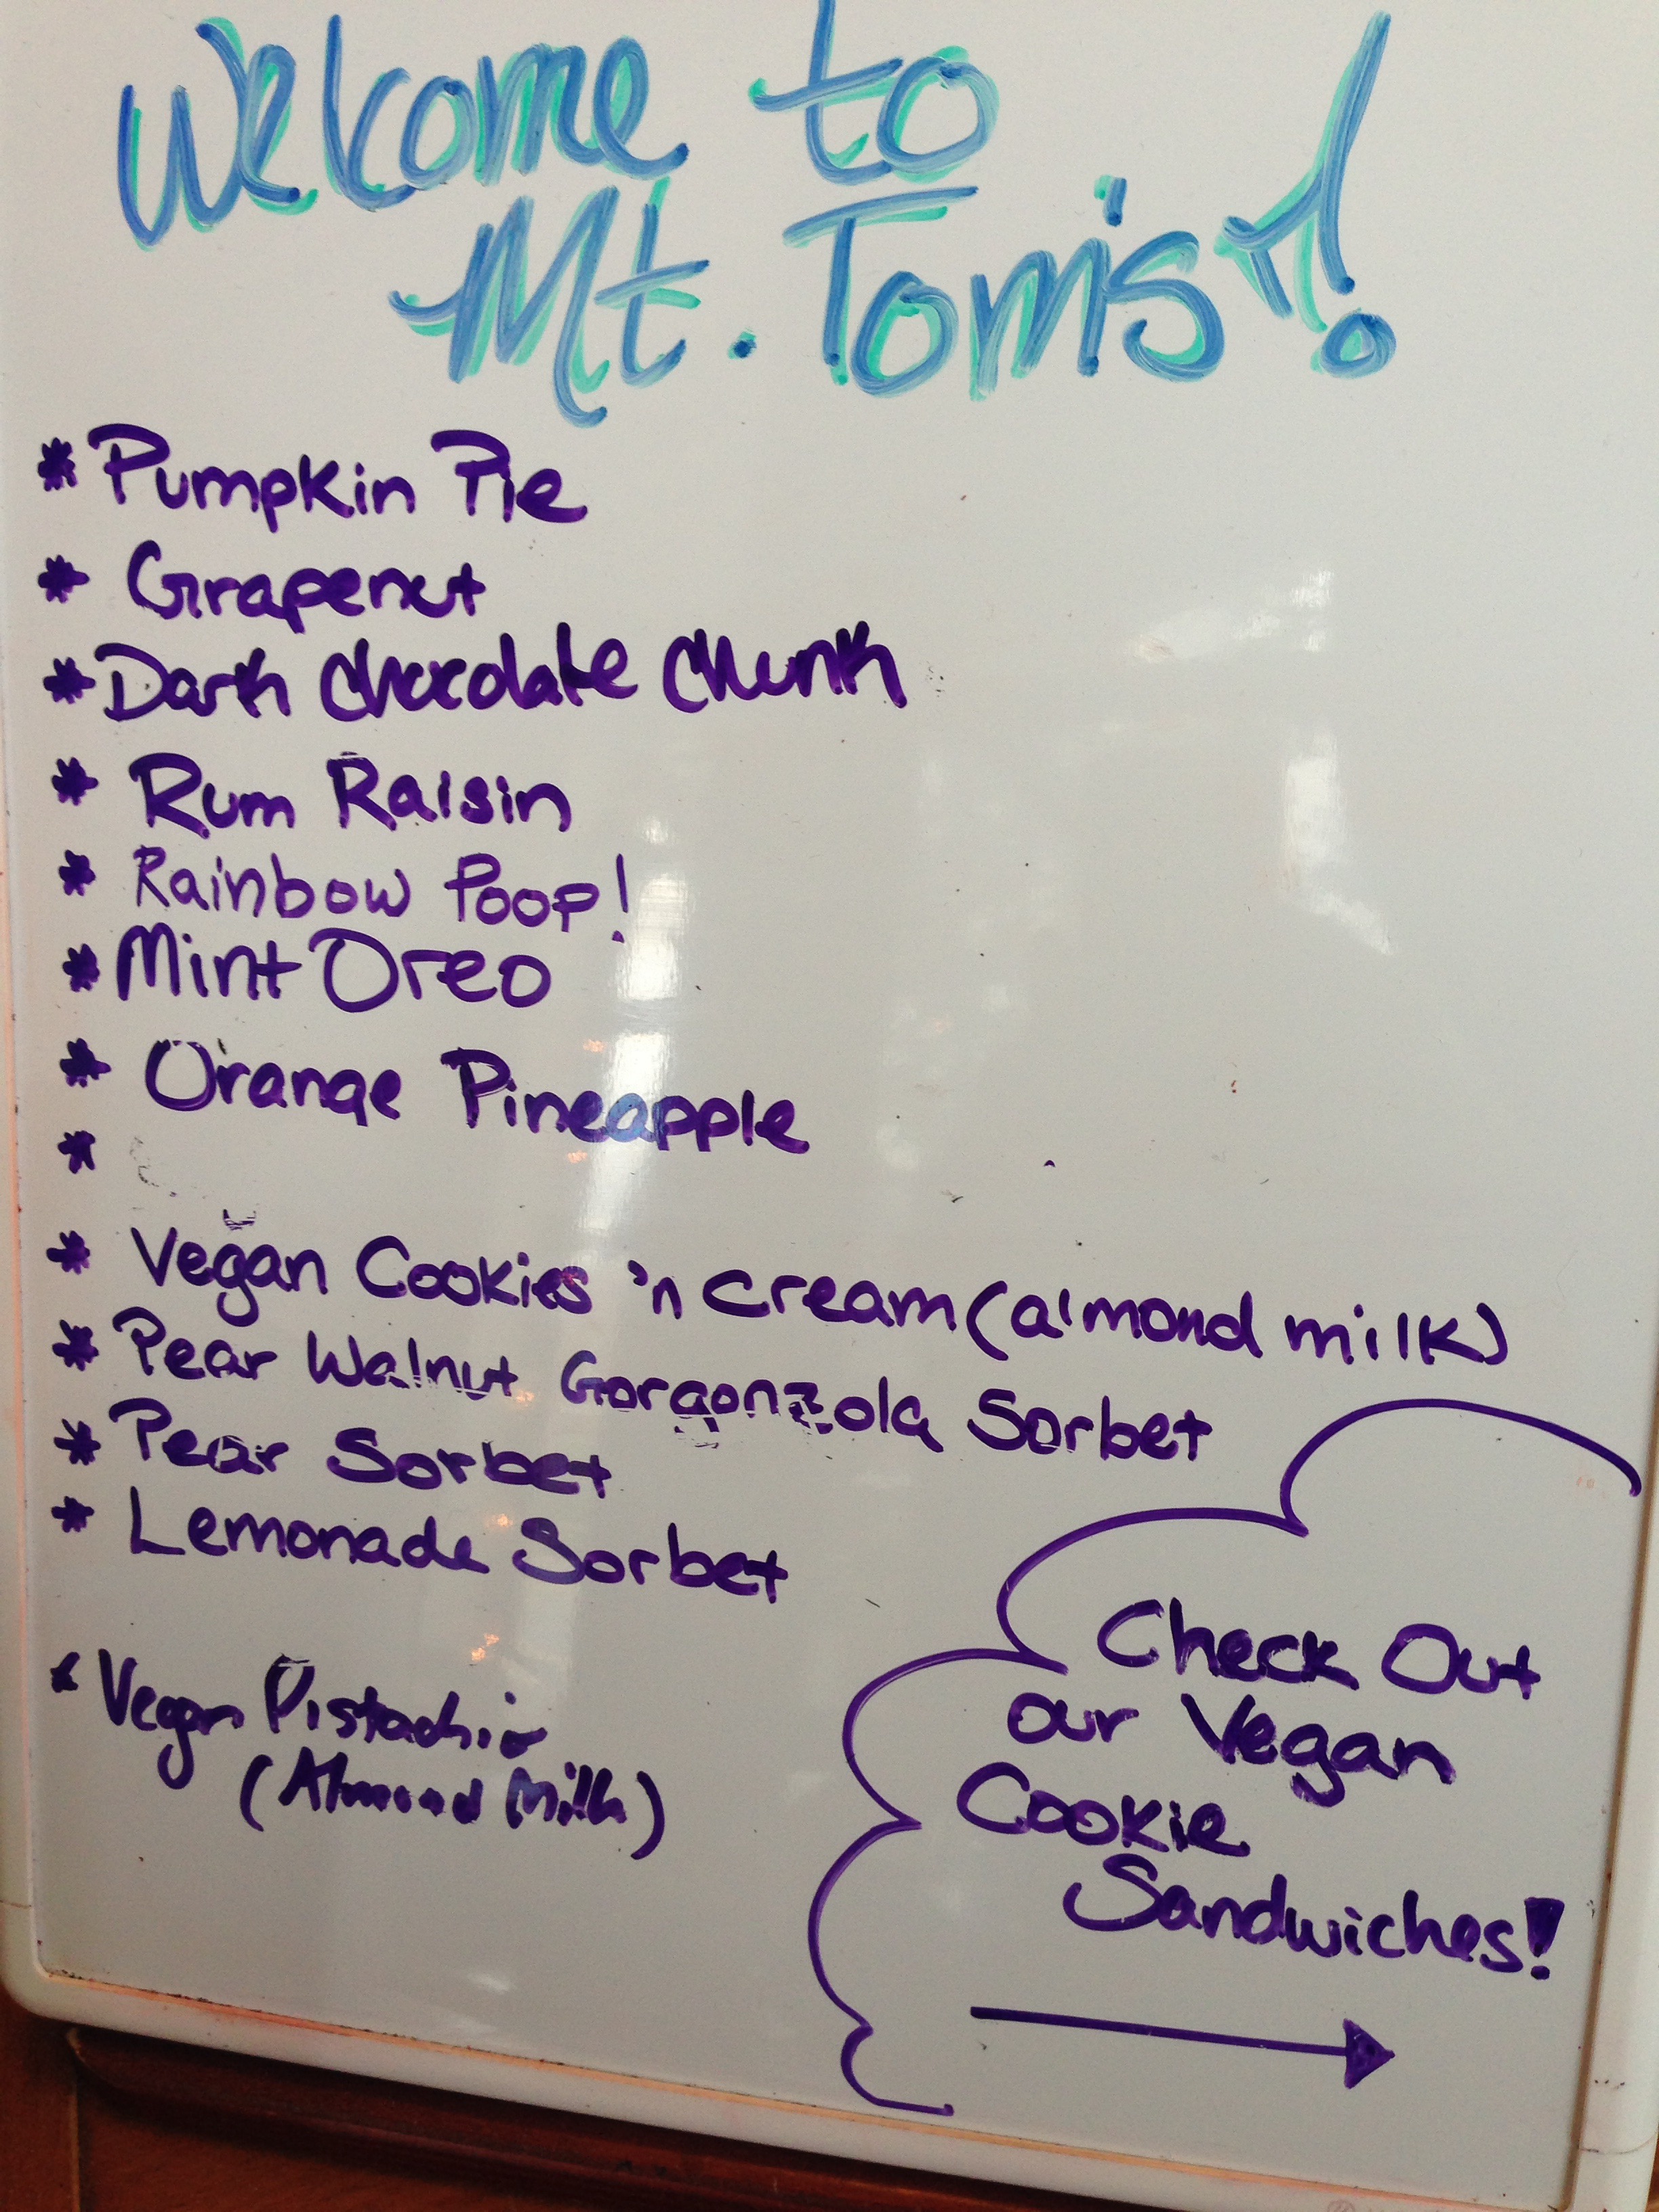 Welcome to
Mt. Tom's!
* Pumpkin Pie
* Grapenut
* Dark Chocolate Chunk
* Rum Raisin
* Rainbow Poop!
* Mint Oreo
* Orange Pineapple
*
* Vegan Cookies 'n cream (almond milk)
* Pear Walnut Gorgonzola Sorbet
* Pear Sorbet
* Lemonade Sorbet
* Vegan Pistachio
(Almond Milk)
Check Out
our Vegan
Cookie
Sandwiches!